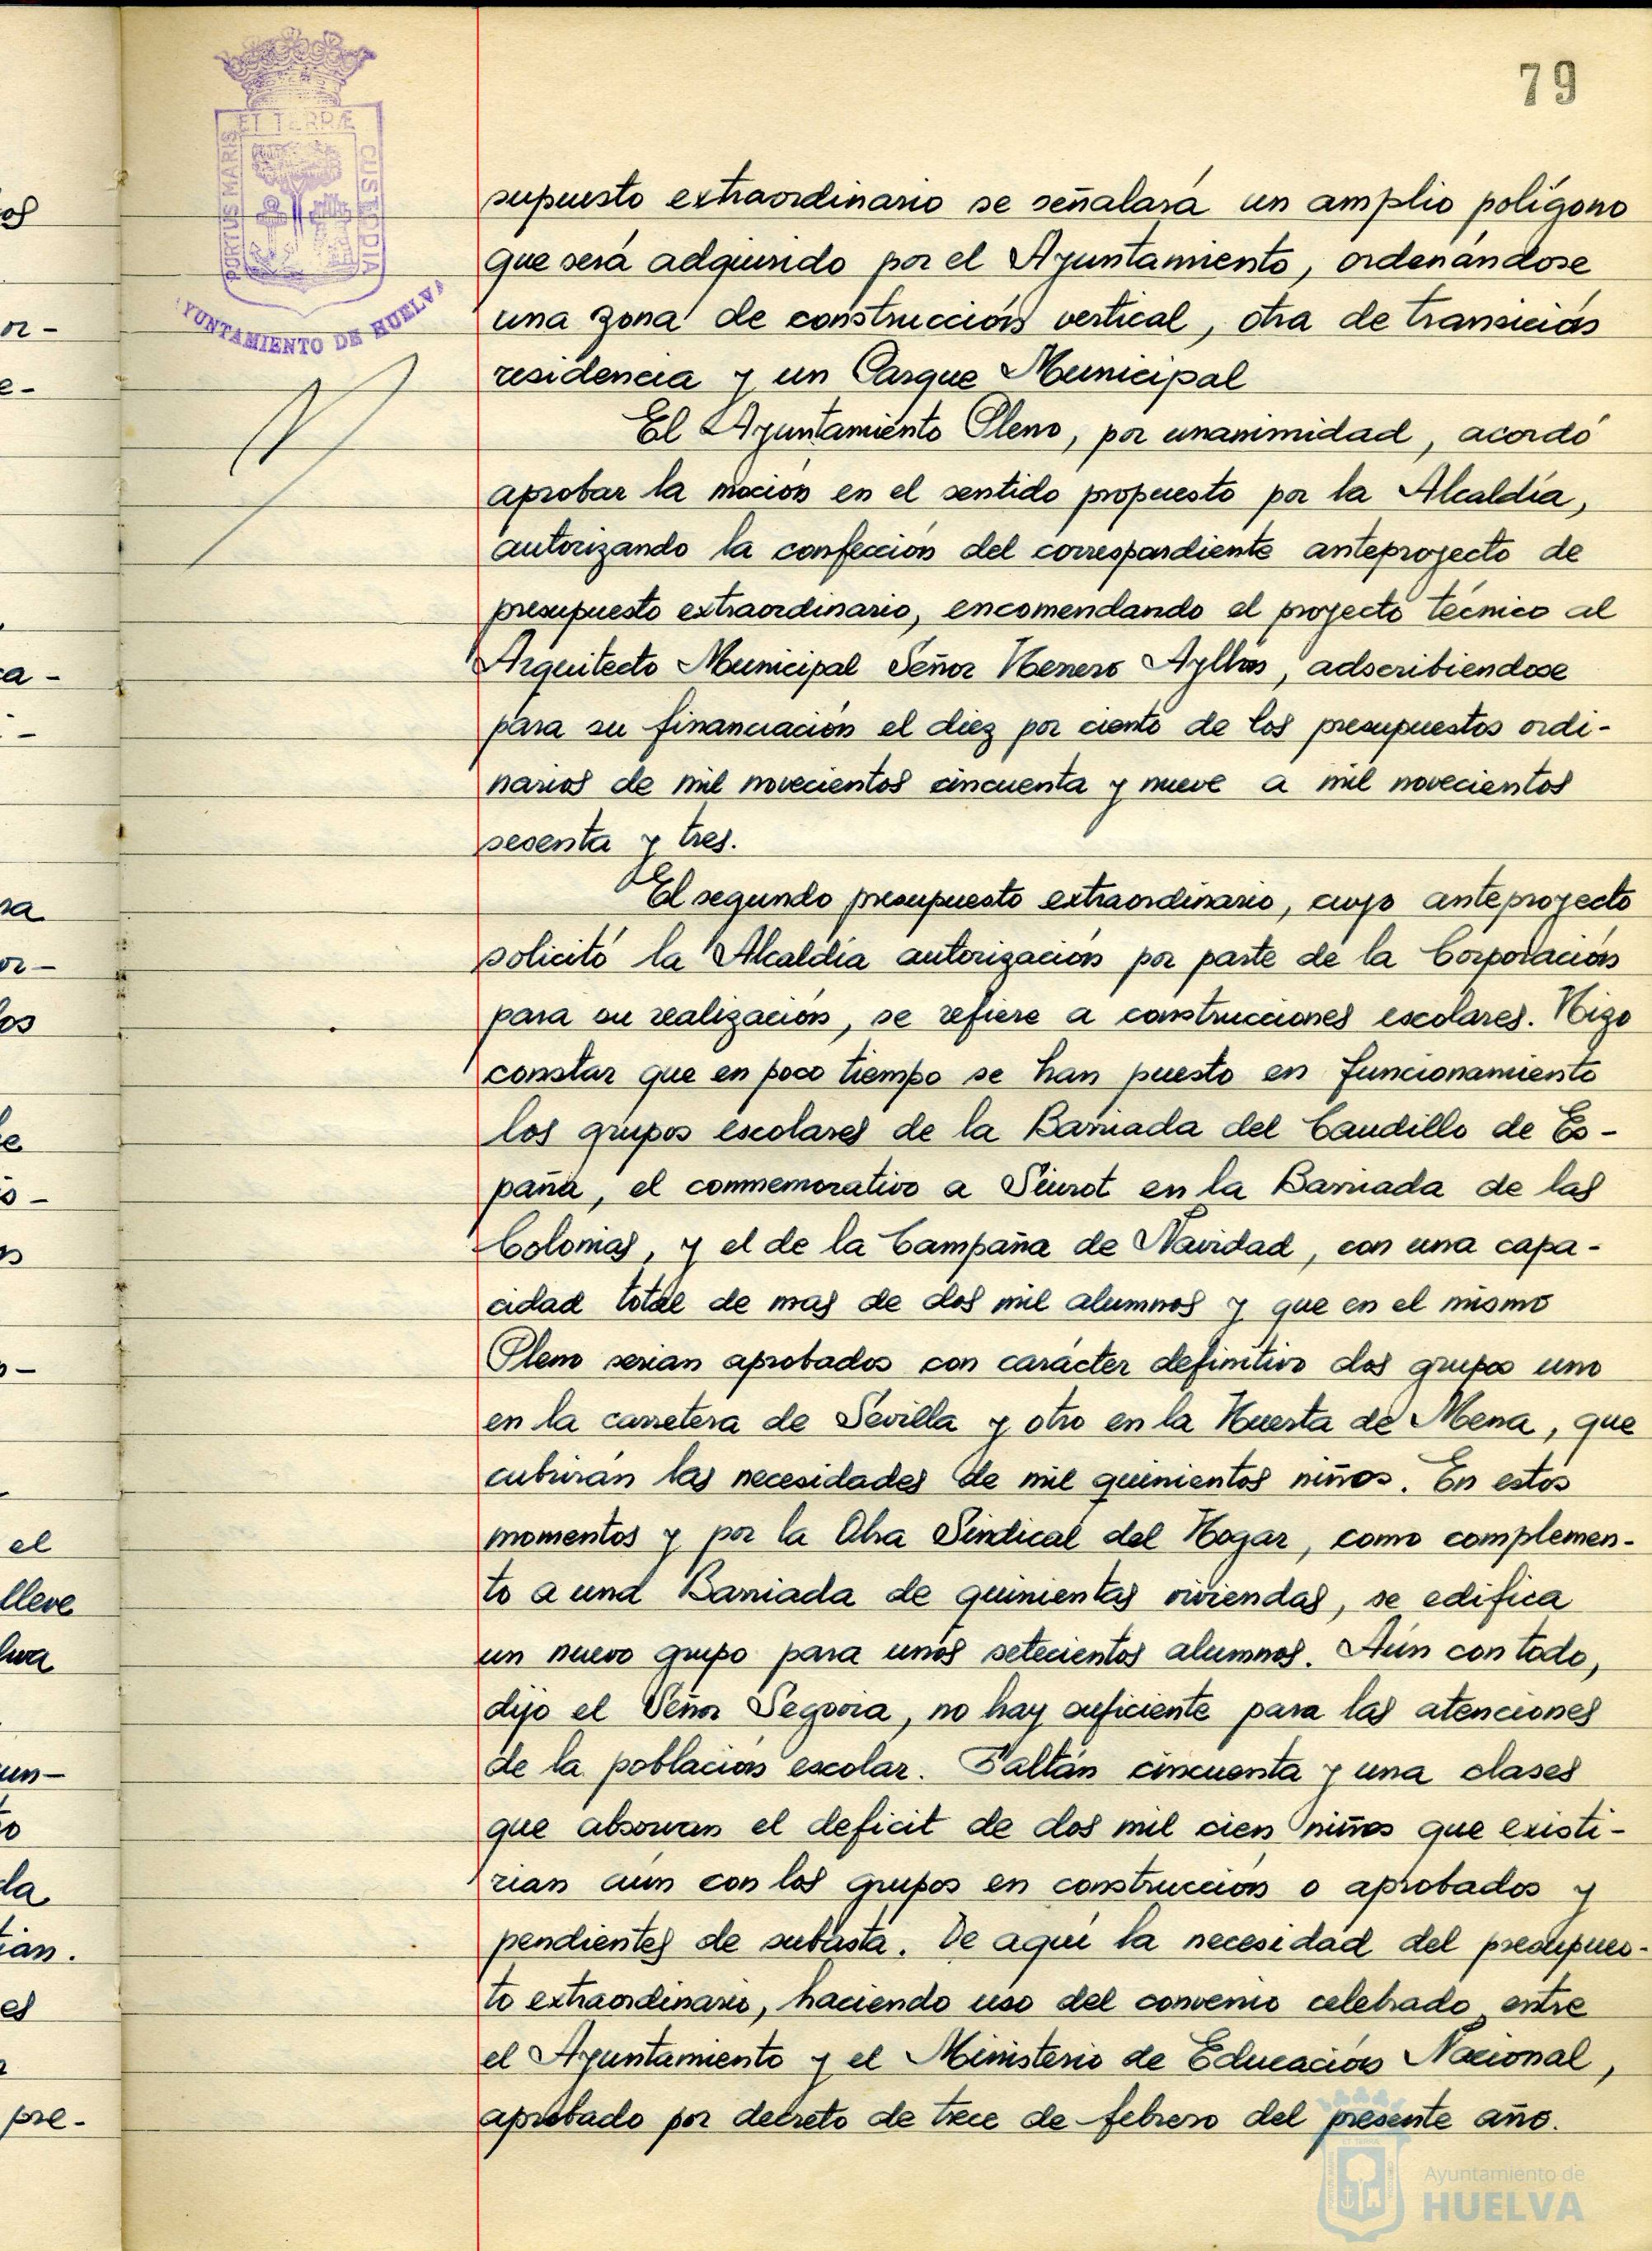 79
ET TERRÆ
PORTUS MARIS
CUSTODIA
YUNTAMIENTO DE HUELVA
supuesto extraordinario se señalará un amplio polígono
que será adquirido por el Ayuntamiento, ordenándose
una zona de construcción vertical, otra de transición
residencia y un Parque Municipal
El Ayuntamiento Pleno, por unanimidad, acordó
aprobar la moción en el sentido propuesto por la Alcaldía,
autorizando la confección del correspondiente anteproyecto de
presupuesto extraordinario, encomendando el proyecto técnico al
Arquitecto Municipal Señor Herrero Ayllón, adscribiendose
para su financiación el diez por ciento de los presupuestos ordi-
narios de mil novecientos cincuenta y nueve a mil novecientos
sesenta y tres.
El segundo presupuesto extraordinario, cuyo anteproyecto
solicitó la Alcaldía autorización por parte de la Corporación
para su realización, se refiere a construcciones escolares. Hizo
constar que en poco tiempo se han puesto en funcionamiento
los grupos escolares de la Barriada del Caudillo de Es-
paña, el conmemorativo a Siurot en la Barriada de las
Colonias, y el de la Campaña de Navidad, con una capa-
cidad total de mas de dos mil alumnos y que en el mismo
Pleno serian aprobados con carácter definitivo dos grupos uno
en la carretera de Sevilla y otro en la Huerta de Mena, que
cubrirán las necesidades de mil quinientos niños. En estos
momentos y por la Obra Sindical del Hogar, como complemen-
to a una Barriada de quinientas viviendas, se edifica
un nuevo grupo para unos setecientos alumnos. Aún con todo,
dijo el Señor Segovia, no hay suficiente para las atenciones
de la población escolar. Faltán cincuenta y una clases
que absorvan el deficit de dos mil cien niños que existi-
rian aún con los grupos en construcción o aprobados y
pendientes de subasta. De aquí la necesidad del presupues-
to extraordinario, haciendo uso del convenio celebrado entre
el Ayuntamiento y el Ministerio de Educación Nacional,
aprobado por decreto de trece de febrero del presente año.
Ayuntamiento de
HUELVA